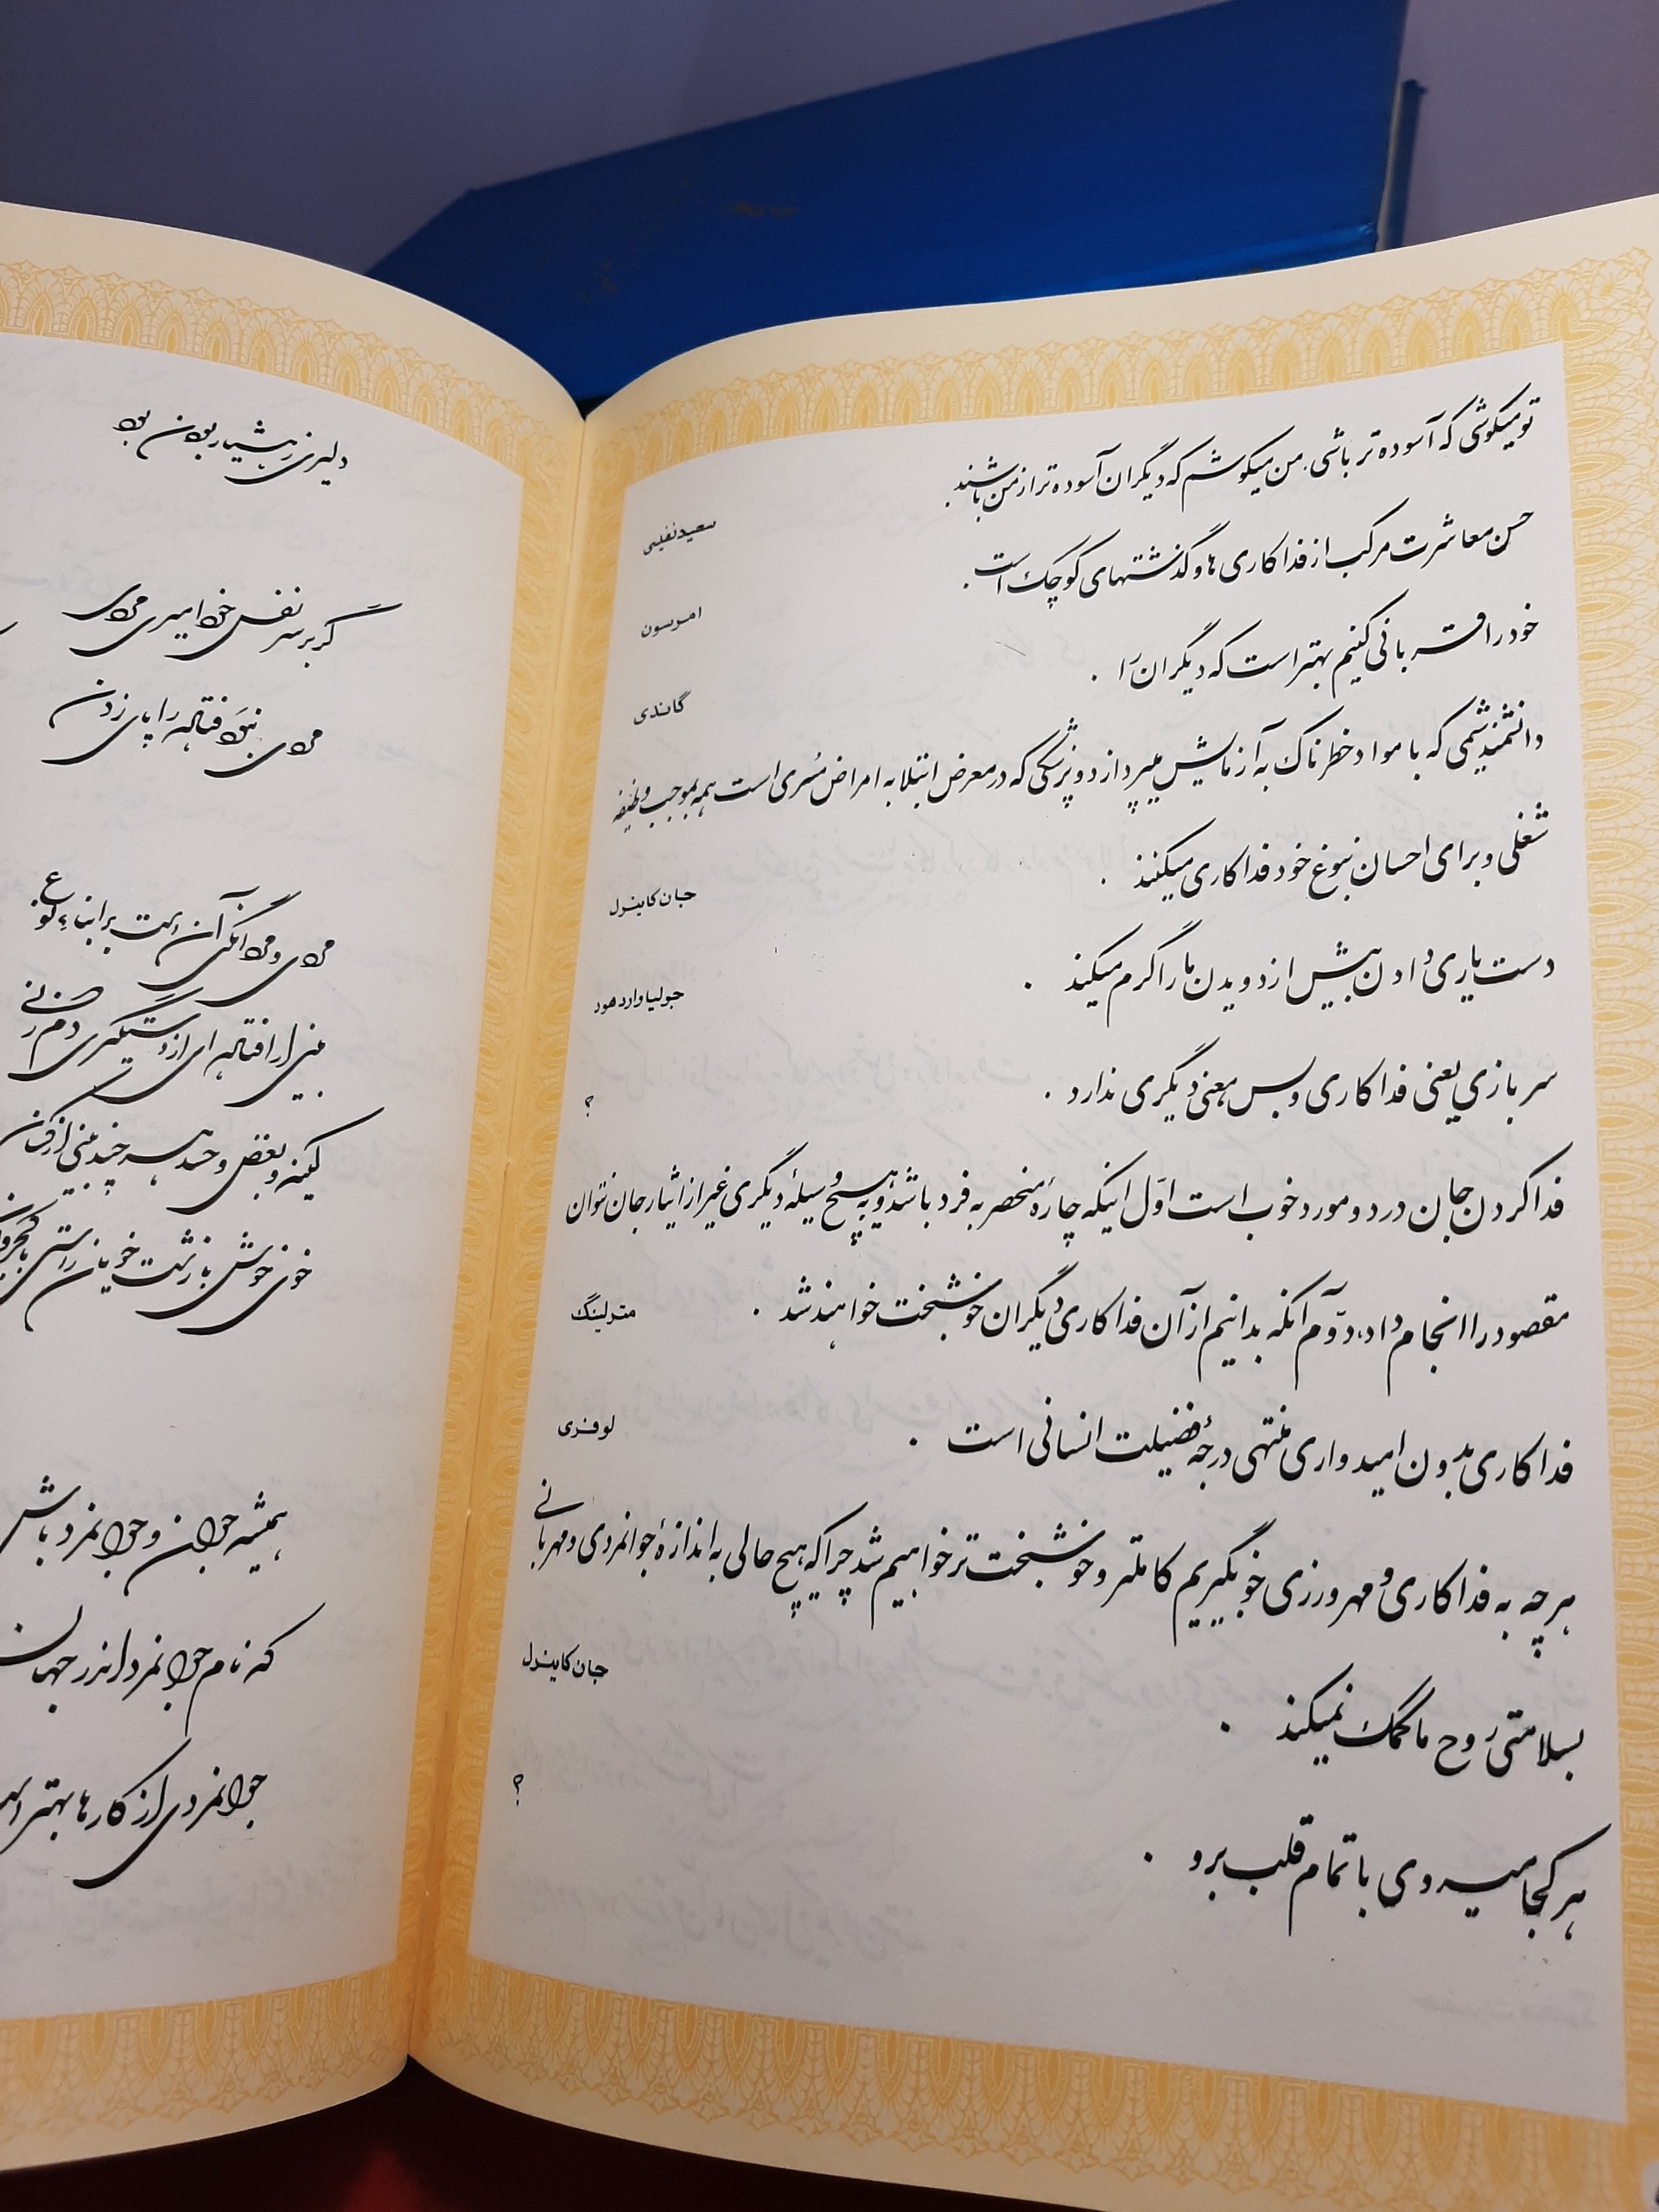 تو میکوشی که آسوده تر باشی. من میکوشم که دیگران آسوده تر از من باشند.
سعید نفیسی
حسن معاشرت مرکب از فداکاری ها و گذشتهای کوچک است.
امرسون
خود را قربانی کنیم بهتر است که دیگران را.
گاندی
دانشمند شیمی که با مواد خطرناک به آزمایش میپردازد و پزشکی که در معرض ابتلا به امراض مسری است همه بموجب وظیفه
شغلی و برای احسان نبوغ خود فداکاری میکنند.
جان کاینرل
دست یاری دادن بیش از دویدن ما را گرم میکند.
جولیا وارد هود
سربازی یعنی فداکاری و بس معنی دیگری ندارد.
؟
فدا کردن جان در دو مورد خوب است اوّل اینکه چارهٔ منحصر به فرد باشد و به هیچ وسیلهٔ دیگری غیر از ایثار جان نتوان
مقصود را انجام داد، دوّم آنکه بدانیم از آن فداکاری دیگران خوشبخت خواهند شد.
مترلینگ
فداکاری بدون امیدواری منتهی درجهٔ فضیلت انسانی است.
لوفری
هر چه به فداکاری و مهرورزی خو بگیریم کاملتر و خوشبخت تر خواهیم شد چرا که هیچ حالی به اندازهٔ جوانمردی و مهربانی
بسلامتی روح ما کمک نمیکند.
جان کاینرل
هر کجا میروی با تمام قلب برو.
؟
دلیری ز هشیار بودن بود
گر بر سر نفس خود امیری مردی
مردی نبود فتاده را پای زدن
مردی و مردانگی آن است بر ابناء نوع
بینی ار افتاده ای از دستگیری دم زنی
کینه و بغض و حسد هر چند بینی از کسان
خوی خوش با زشت خویان راستی با کجروان
همیشه جوان و جوانمرد باش
که نام جوانمرد اندر جهان
جوانمردی از کارها بهتر است